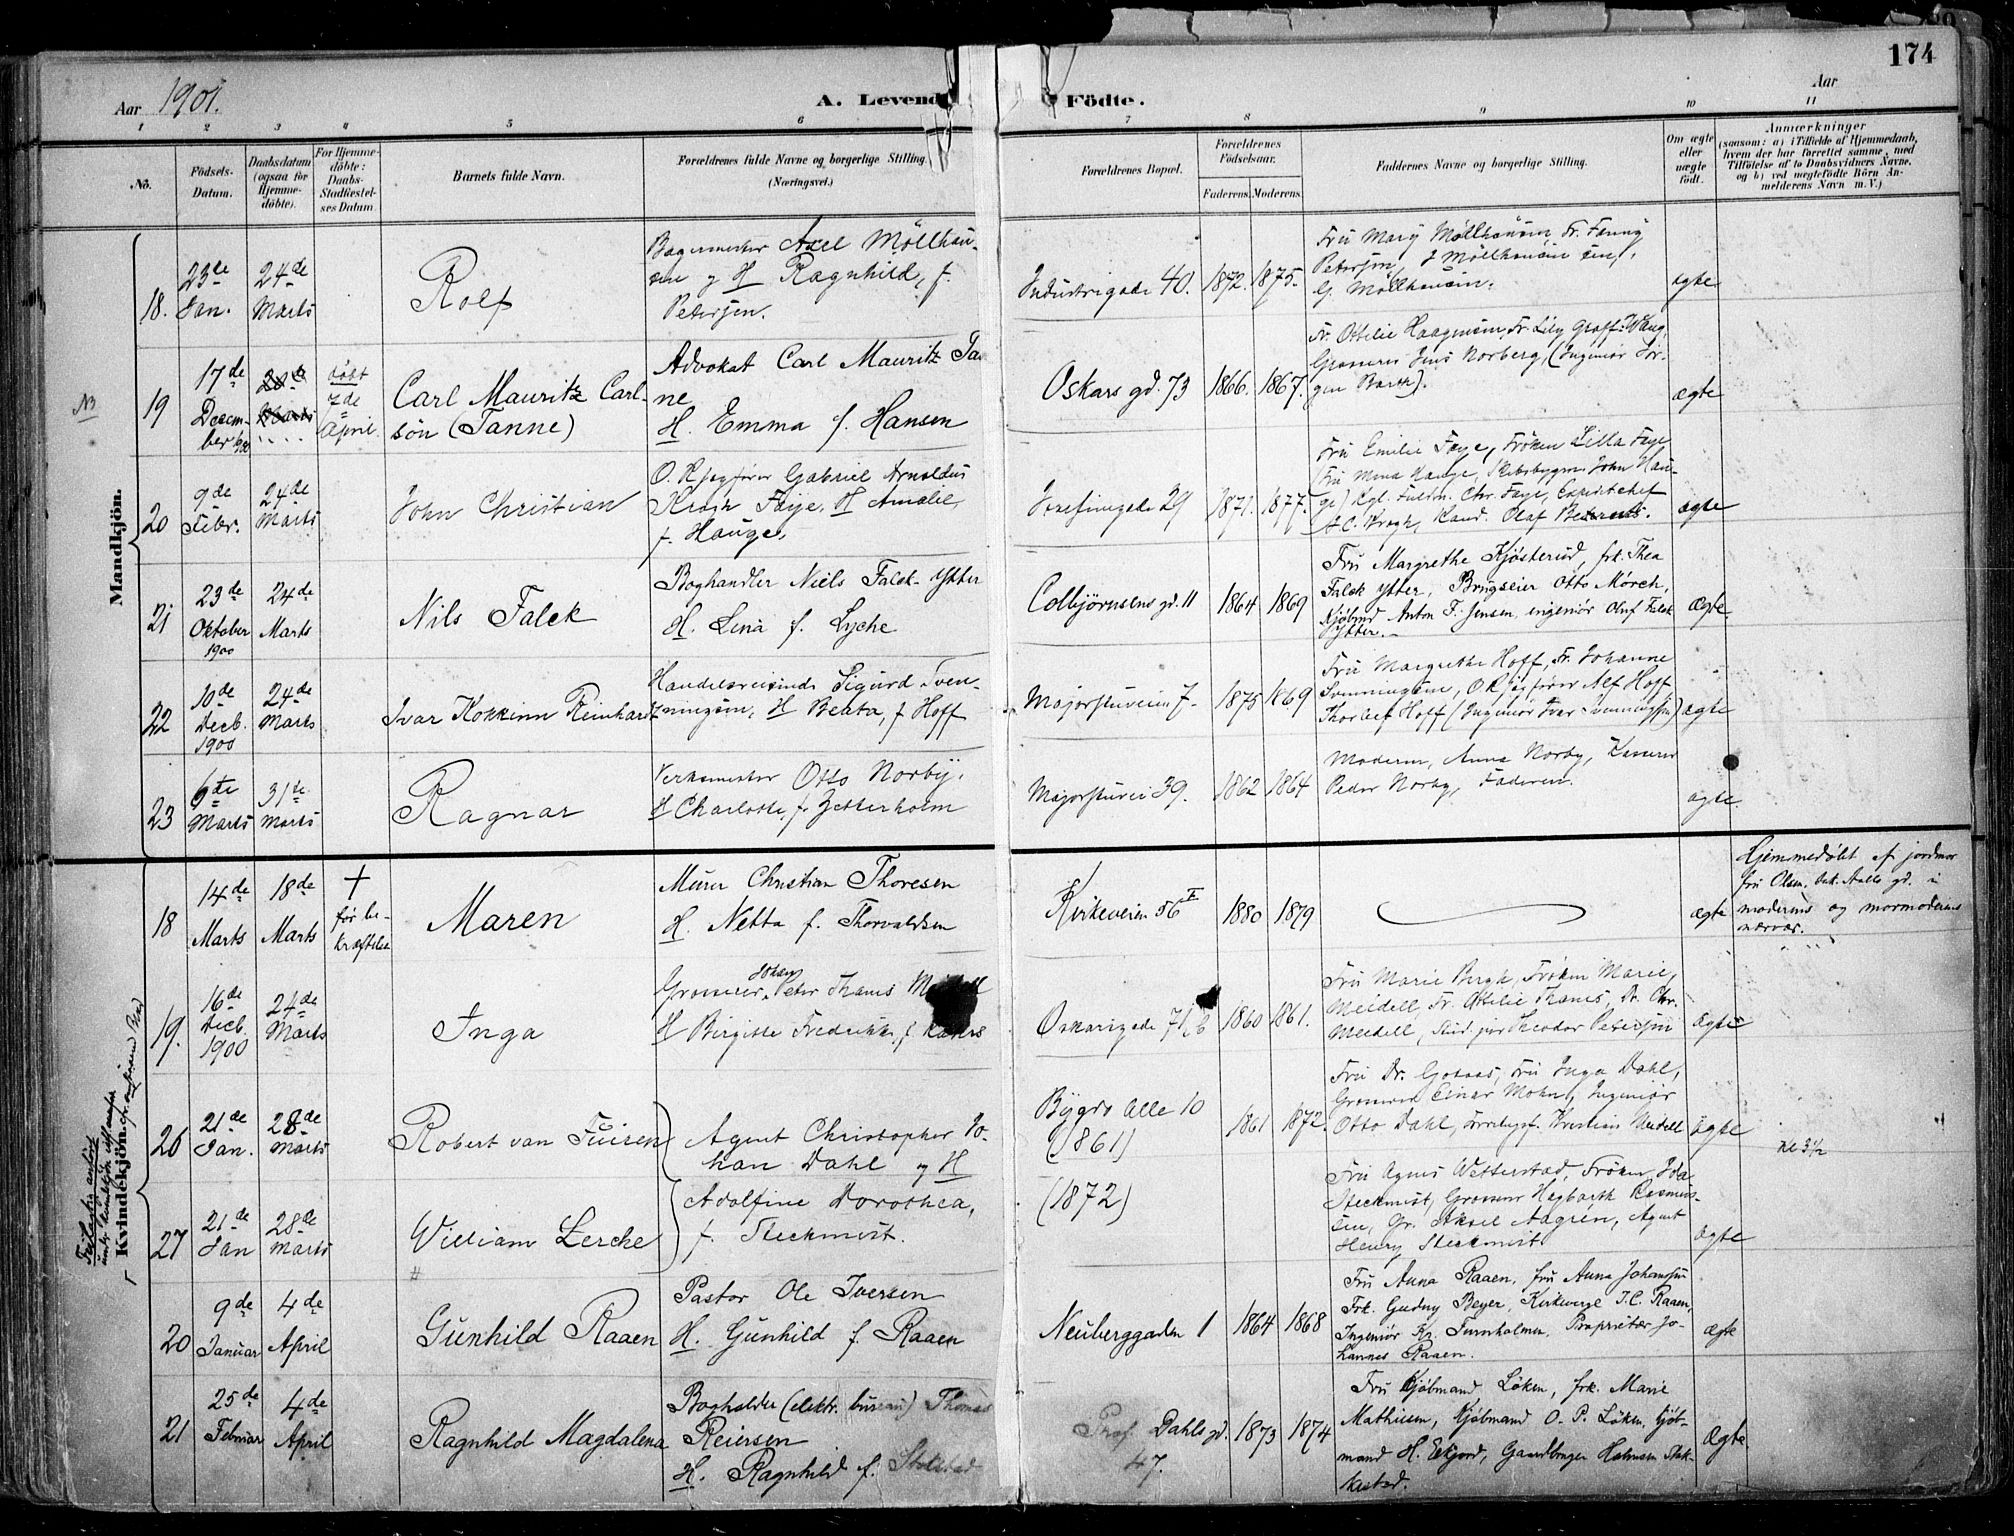 174
Aar 1901.
A. Levende Födte.
Aar
1 2 3 4 5 6 7 8 9 10 11
No.
Födsels-Datum.
Daabsdatum (ogsaa for Hjemmedöbte).
For Hjemmedöbte: Daabs-Stadfæstelses Datum.
Barnets fulde Navn.
Forældrenes fulde Navne og borgerlige Stilling. (Næringsvei.)
Forældrenes Bopæl.
Forældrenes Födselsaar.
Faderens. Moderens.
Faddernes Navne og borgerlige Stilling.
Om ægte eller uægte födt.
Anmærkninger
(saasom: a) i Tilfælde af Hjemmedaab, hvem der har forrettet samme, med Tilföielse af to Daabsvidners Navne, og b) ved uægtefödte Börn Anmelderens Navn m. V.)
Mandkjön.
18. 23de Jan. 24de Marts
Rolf
Bagermester Axel Möllhausen og H Ragnhild, f. Petersen.
Industrigade 40. 1872. 1875.
Fru Mary Möllhausen, Fr. Fanny Petersen, J Möllhausen sen, G. Möllhausen.
ægte
NB
19 17de December 1900 døbt 7de April
Carl Mauritz Carlsön (Tanne)
Advokat Carl Mauritz Tanne
H. Emma f. Hansen
Oskars gd. 73 1866. 1867.
Fr. Ottilie Haagensen, Fr. Lily Graff-Wang Grosserer Jens Norberg, (Ingeniør Jørgen Barth).
ægte
20 9de Febr. 24de Marts
John Christian
O.R.sagfører Gabriel Arnoldus Krogh Faye, H Amalie, f. Hauge,
Josefinegade 29 1871. 1877.
Fru Emilie Faye, Frøken Lilla Faye (Fru Mona Hauge, Skibsbygger John Hauge) Kgl. Fuldm. Chr. Faye, A.C. Krogh, Kand. Olaf
ægte
21 23de Oktober 1900 24de Marts
Nils Falck
Boghandler Niels Falck-Ytter
H. Lina f. Lyche
Colbjörnsens gd. 11 1864 1869
Fru Margrethe Kjösterud, frk. Thea Falck Ytter, Brugseier Otto Mörch, Kjöbmd Anton F. Jensen, ingeniør Oluf Falck Ytter.
ægte.
22 10de Decb. 1900 24de Marts
Ivar Kokkinn Reinhardt
Handelsreisende Sigurd Svenningsen, H Beata, f Hoff
Majorstuveien 7. 1875 1869
Fru Margrethe Hoff, Fr. Johanne Svenningsen, O.R.sagfører Alf Hoff Thorleif Hoff (Ingeniør Ivar Svenningsen)
ægte
23 6te Marts 31te Marts
Ragnar
Verksmester Otto Norby.
H Charlotte, f. Zetterholm
Majorstuvei 39. 1862 1864
Moderen, Anna Norby, Kasserer Peder Norby, Faderen.
ægte.
Kvindekjön.
18 14de Marts 18de Marts † før bekræftelse
Maren
Murer Christian Thoresen
H. Netta f. Thorvaldsen
Kirkeveien 56 1880 1879
ægte
Hjemmedöbt af jordmor fru Olsen, i moderens og mormoderens nærvær.
19. 16de Decb. 1900 24de Marts
Inga
Grosserer Johan Peter Thams
H Birgitte Fredrikke, f.
Oskarsgade 71 b 1860 1861.
Fru Marie Bergh, Frøken Marie Meidell, Fr. Ottilie Thams, Dr. Chr. Meidell, Stud. jur Theodor Petersen
ægte
26 21de Jan. 28de Marts
Robert van
Agent Christopher Johan Dahl og H
Bygdø Alle 10 (1861) 1861 1872.
Fru Dr. Fru Inga Dahl, Grosserer Einar Mohn, Ingeniør Otto Dahl, Kristian Meidell
ægte
kl 3½
27 21de Jan 28de Marts
William Lerche
Adolfine Dorothea, f. Steckmest.
(1872)
Fru Agnes Wetterstad, Frøken Ida Steckmest, Grosserer Hagbarth Rasmussen, Gr. Aksel Aagren, Agent Henry Steckmest
ægte
20 9de Januar 4de April
Gunhild Raaen
Pastor Ole Iversen
H. Gunhild f. Raaen
Neuberggaden 1 1864 1868
Fru Anna Raaen, fru Anna Johansen Frk. Gudny Beyer, Kirkeverge J.C. Raaen, Ingeniør Kr. Turnholmen, Proprietær Johannes Raaen.
ægte
21 25de Februar 4de April
Ragnhild Magdalena
Bogholder (elektr. bureau) Thomas Reiersen
H. Ragnhild f.
Prof. Dahls gd. 47. 1873 1874
Fru Kjöbmand Löken, frk. Marie Mathiesen, Kjöbmand O. P. Löken, Kjöbmand H. Gaardbruger
Ægte.